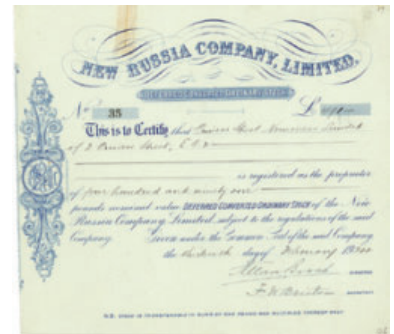 NEW RUSSIA COMPANY, LIMITED.
DEFERRED CONVERTED ORDINARY STOCK
No 35 £
This is to Certify that Street Nominees Limited
of 2 Street, E.C.2
is registered as the proprietor
of four hundred and ninety one
pounds nominal value DEFERRED CONVERTED ORDINARY STOCK of the New
Russia Company, Limited, subject to the regulations of the said
Company. Given under the Common Seal of the said Company
the day of February 19
N.B. STOCK IS TRANSFERABLE IN SUMS OF ONE POUND AND MULTIPLES THEREOF ONLY